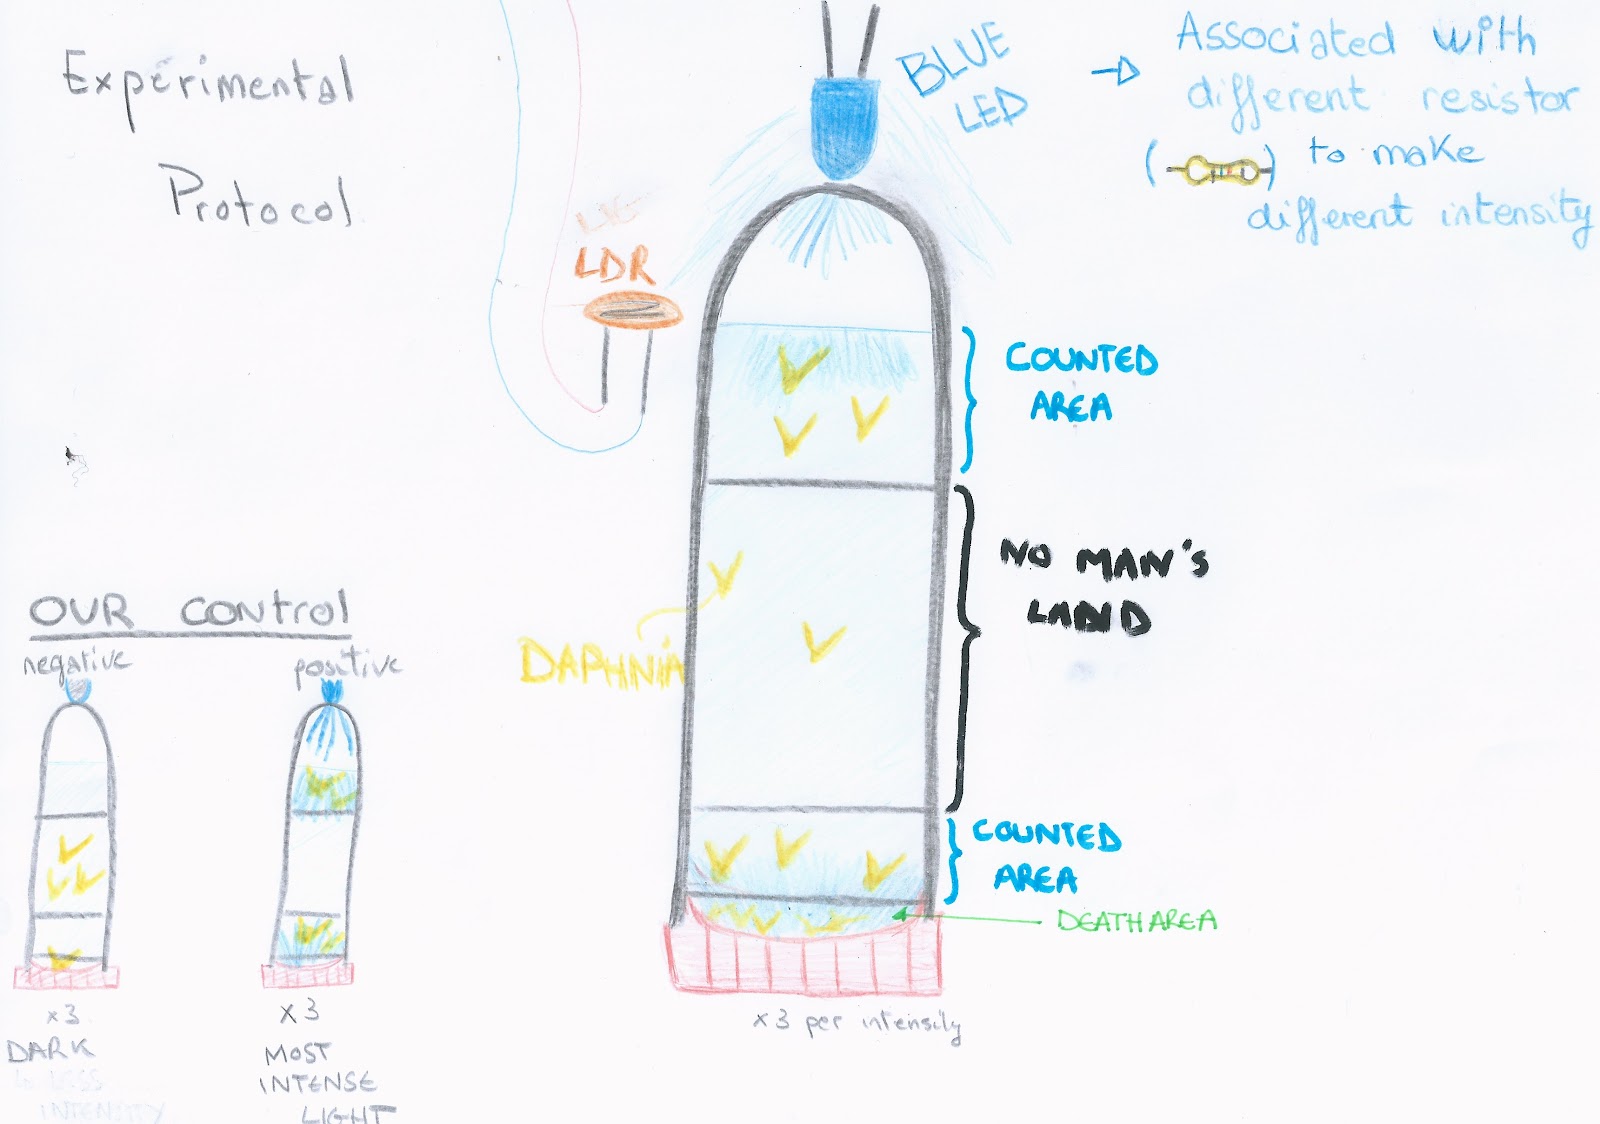 Experimental
Protocol
BLUE
LED
Associated with
different resistor
( ) to make
different intensity
LIG
LDR
COUNTED
AREA
NO MAN'S
LAND
DAPHNIA
COUNTED
AREA
DEATH AREA
x3 per intensity
OUR CONTROL
negative
positive
x3
DARK
LESS
INTENSITY
x3
MOST
INTENSE
LIGHT